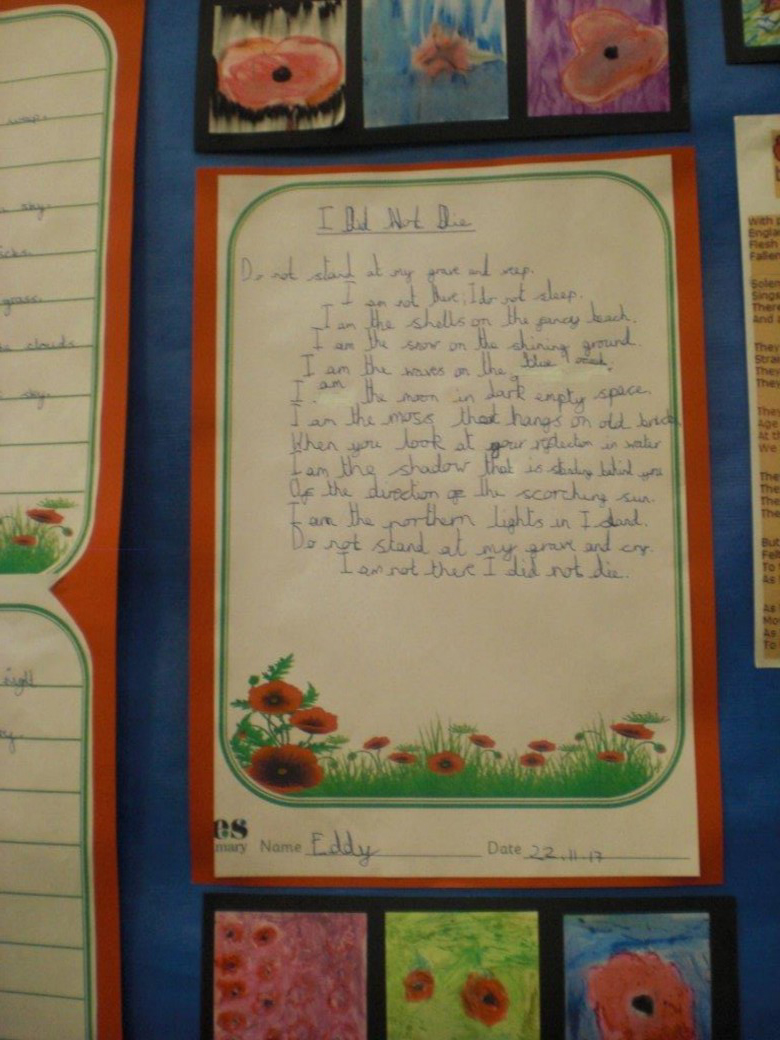 wrap.
sky.
grass.
clouds
sky.
night
I Did Not Die
Do not stand at my grave and weep.
I am not there; I do not sleep.
I am the shells on the fancy beach.
I am the snow on the shining ground.
I am the waves on the blue
I am the moon in dark empty space.
I am the moss that hangs on old brick
When you look at your reflection in water
I am the shadow that is standing behind you
Of the direction of the scorching sun.
I am the northern lights in I stand.
Do not stand at my grave and cry.
I am not there I did not die.
es
mary
Name Eddy
Date 22.11.17
With
Engla
Flesh
Fallen
Solem
Sing
There
And a
They
Strai
They
They
They
Age
At th
We
The
The
The
The
But
Fel
To
As
As
Mo
As
To